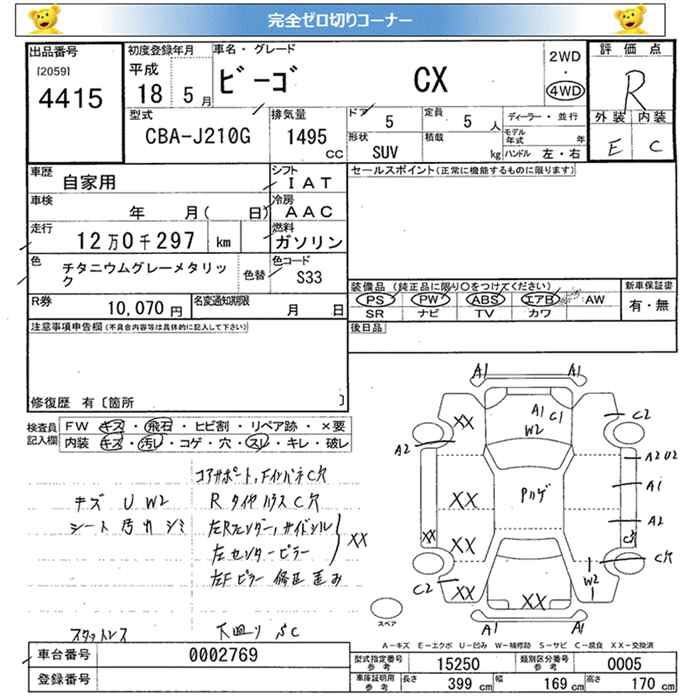 完全ゼロ切りコーナー
出品番号
[2059]
4415
初度登録年月
平成
18 5月
車名・グレード
ビーゴ CX
2WD
・
4WD
評価点
R
外装 内装
E C
型式
CBA-J210G
排気量
1495
cc
ドア
5
定員
5 人
形状
SUV
積載
kg
ディーラー・並行
モデル年式 年
ハンドル 左・右
車歴
自家用
シフト
IAT
車検
年 月( 日)
冷房
AAC
走行
12万0千297 km
燃料
ガソリン
色
チタニウムグレーメタリック
色替
色コード
S33
R券
10,070円
名変通知期限
月 日
セールスポイント(正常に機能するものに限ります)
装備品(純正品に限り○をつけてください)
PS PW ABS エアB AW
SR ナビ TV カワ
新車保証書
有・無
後日品
注意事項申告欄(不具合内容等は具体的に記入して下さい)
修復歴 有〔箇所 〕
検査員記入欄
FW キズ・飛石・ヒビ割・リペア跡・×要
内装 キズ・汚レ・コゲ・穴・スレ・キレ・破レ
コアサポート、Fインパネ C穴
キズ U W2
R タイヤハウス C穴
シート 汚れ シミ
左Rフェンダー、サイドシル
左センターピラー
XX
左Fピラー 修正 歪み
スタットレス
下廻り SC
A1 A1
XX
A1 C1
W2
C2
A2
A2 U2
A1
XX
Pハゲ
A2
XX
XX
C穴
C穴
W2
C2
XX
XX
A1 A1
スペア
A－キズ E－エクボ U－凹み W－補修跡 S－サビ C－腐食 XX－交換済
車台番号
0002769
登録番号
型式指定番号 参考
15250
類別区分番号 参考
0005
車庫証明用 参考
長さ 399 cm
幅 169 cm
高さ 170 cm